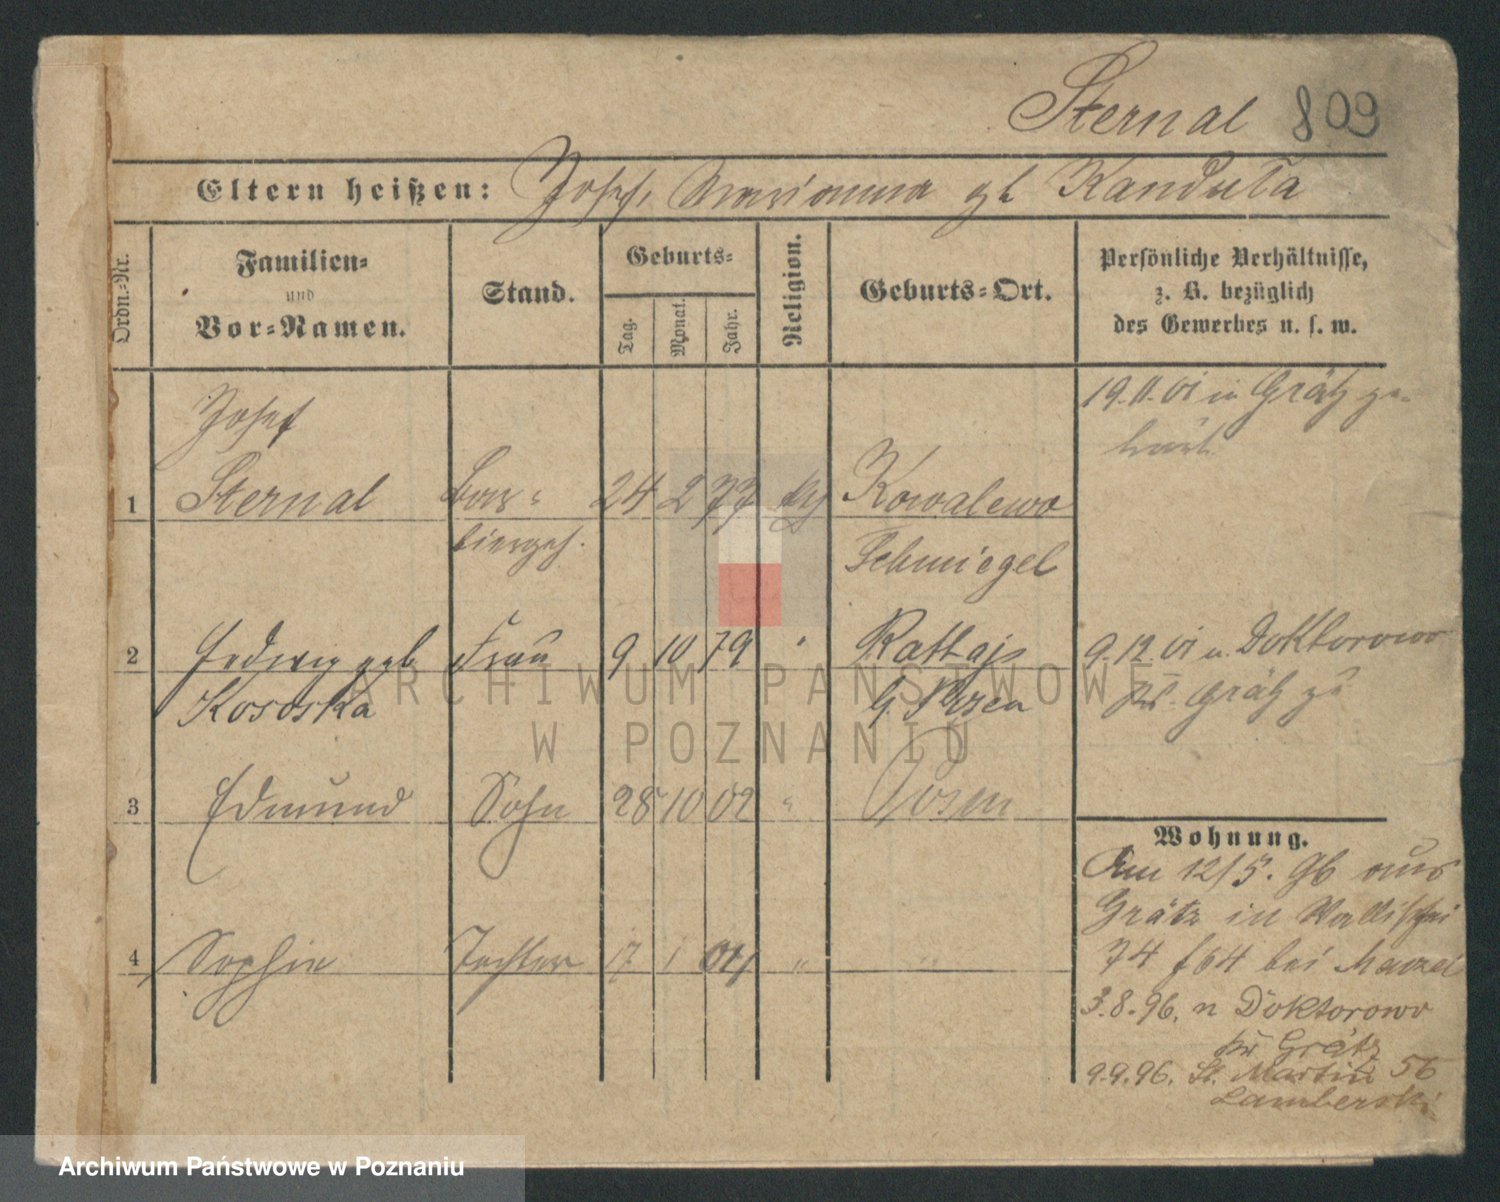 Sternal 809
Eltern heißen: Josef, Marianna gb Kanduła
Ordn.-Nr.
Familien-
und
Vor-Namen.
Stand.
Geburts-
Tag.
Monat.
Jahr.
Religion.
Geburts-Ort.
Persönliche Verhältnisse,
z. B. bezüglich
des Gewerbes u. s. w.
Josef
1 Sternal Bar- 24 2 77 Kowalewo
biergeh. Schmiegel
19.11.01 in Grätz ge-
2 Hedwig geb Frau 9 10 79 " Rattajs
Kososka G. Posen
9.12.01 n. Doktorowo
Kr. Grätz
3 Edmund Sohn 28 10 02 " Posen
4 Sophie Tochter 17 1 04 " "
Wohnung.
Am 12/5. 96 aus
Grätz in Wallischei
74 bei
3.8.96. n Doktorowo
Kr Grätz
9.9.96. St. Martin 56
Lamberski
ARCHIWUM PAŃSTWOWE
W POZNANIU
Archiwum Państwowe w Poznaniu